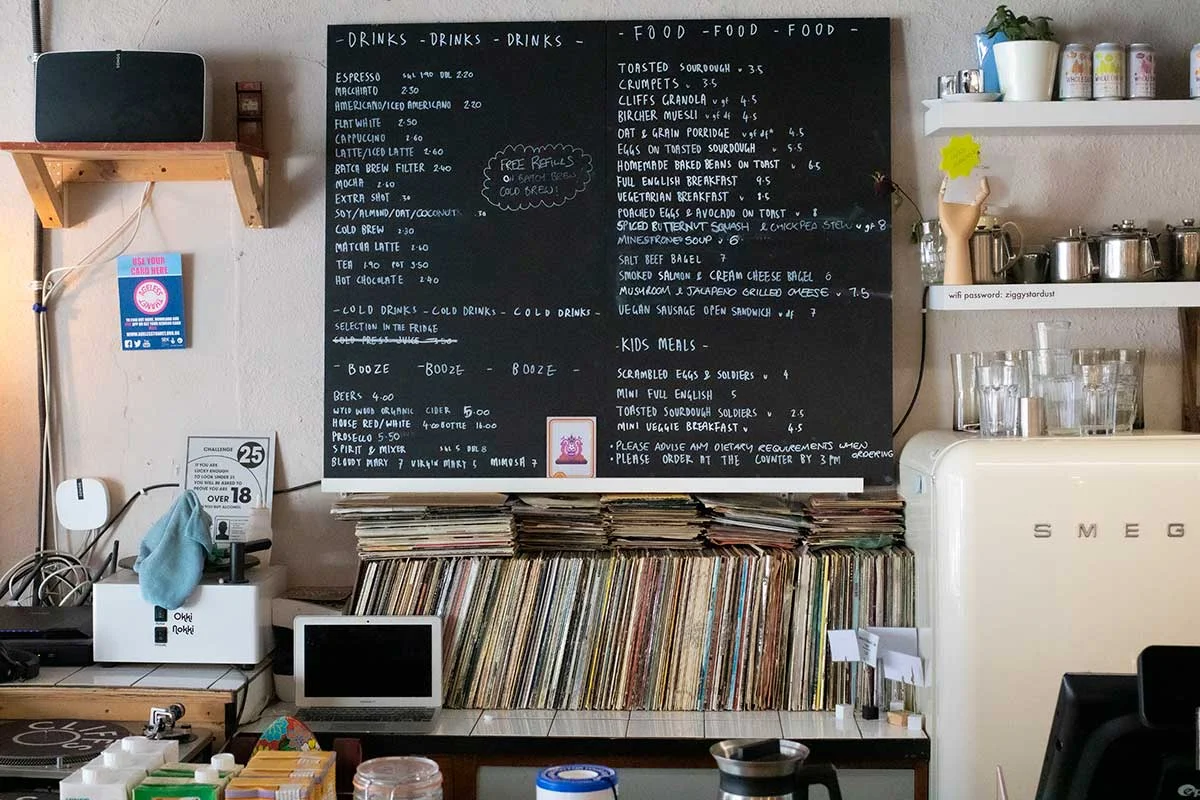 -DRINKS -DRINKS -DRINKS -
ESPRESSO SGL 1.90 DBL 2.20
MACCHIATO 2.30
AMERICANO/ICED AMERICANO 2.20
FLAT WHITE 2.50
CAPPUCCINO 2.60
LATTE/ICED LATTE 2.60
BATCH BREW FILTER 2.40
MOCHA 2.60
EXTRA SHOT .30
SOY/ALMOND/OAT/COCONUT .30
COLD BREW 2.30
MATCHA LATTE 2.60
TEA 1.90 POT 3.50
HOT CHOCOLATE 2.40
FREE REFILLS
ON BATCH BREW
COLD BREW!
-COLD DRINKS -COLD DRINKS - COLD DRINKS-
SELECTION IN THE FRIDGE
COLD PRESS JUICE 3.50
- BOOZE -BOOZE - BOOZE -
BEERS 4.00
WYLD WOOD ORGANIC CIDER 5.00
HOUSE RED/WHITE 4.00 BOTTLE 16.00
PROSECCO 5.50
SPIRIT & MIXER SGL 5 DBL 8
BLOODY MARY 7 VIRGIN MARY 5 MIMOSA 7
- FOOD -FOOD - FOOD -
TOASTED SOURDOUGH v 3.5
CRUMPETS v 3.5
CLIFFS GRANOLA v gf 4.5
BIRCHER MUESLI v gf df 4.5
OAT & GRAIN PORRIDGE v gf df* 4.5
EGGS ON TOASTED SOURDOUGH v 5.5
HOMEMADE BAKED BEANS ON TOAST v 6.5
FULL ENGLISH BREAKFAST 9.5
VEGETARIAN BREAKFAST v 8.5
POACHED EGGS & AVOCADO ON TOAST v 8
SPICED BUTTERNUT SQUASH & CHICKPEA STEW v gf 8
MINESTRONE SOUP v 6
SALT BEEF BAGEL 7
SMOKED SALMON & CREAM CHEESE BAGEL 6
MUSHROOM & JALAPENO GRILLED CHEESE v 7.5
VEGAN SAUSAGE OPEN SANDWICH v df 7
-KIDS MEALS -
SCRAMBLED EGGS & SOLDIERS v 4
MINI FULL ENGLISH 5
TOASTED SOURDOUGH SOLDIERS v 2.5
MINI VEGGIE BREAKFAST v 4.5
•PLEASE ADVISE ANY DIETARY REQUIREMENTS WHEN ORDERING
•PLEASE ORDER AT THE COUNTER BY 3PM
USE YOUR
CARD HERE
CHALLENGE 25
IF YOU ARE
LUCKY ENOUGH
TO LOOK UNDER 25
YOU WILL BE ASKED TO
PROVE YOU ARE
OVER 18
Okki
Nokki
wifi password: ziggystardust
SMEG